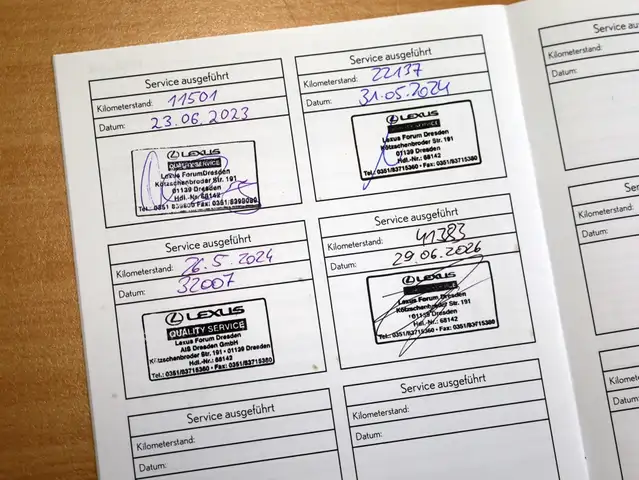 Service ausgeführt
Kilometerstand: 11501
Datum: 23.06.2023
LEXUS
QUALITY SERVICE
Lexus Forum Dresden
Kötzschenbroder Str. 191
01139 Dresden
Hdl.-Nr.: 68142
Service ausgeführt
Kilometerstand: 22137
Datum: 31.05.2024
LEXUS
QUALITY SERVICE
Lexus Forum Dresden
Kötzschenbroder Str. 191
01139 Dresden
Hdl.-Nr.: 68142
Tel.: 0351/83715360 • Fax: 0351/83715380
Service ausgeführt
Kilometerstand: 26.5.2024
Datum: 32007
LEXUS
QUALITY SERVICE
Lexus Forum Dresden
AIS Dresden GmbH
Kötzschenbroder Str. 191 • 01139 Dresden
Hdl.-Nr.: 68142
Tel.: 0351/83715360 • Fax: 0351/83715380
Service ausgeführt
Kilometerstand: 41383
Datum: 29.06.2026
LEXUS
Lexus Forum Dresden
Kötzschenbroder Str. 191
01139 Dresden
Hdl.-Nr.: 68142
Tel.: 0351/83715360 • Fax: 0351/83715380
Service ausgeführt
Kilometerstand:
Datum:
Service ausgeführt
Kilometerstand:
Datum:
Kilometerstand:
Datum:
Kilometerstand:
Datum:
Kilometerstand:
Datum: